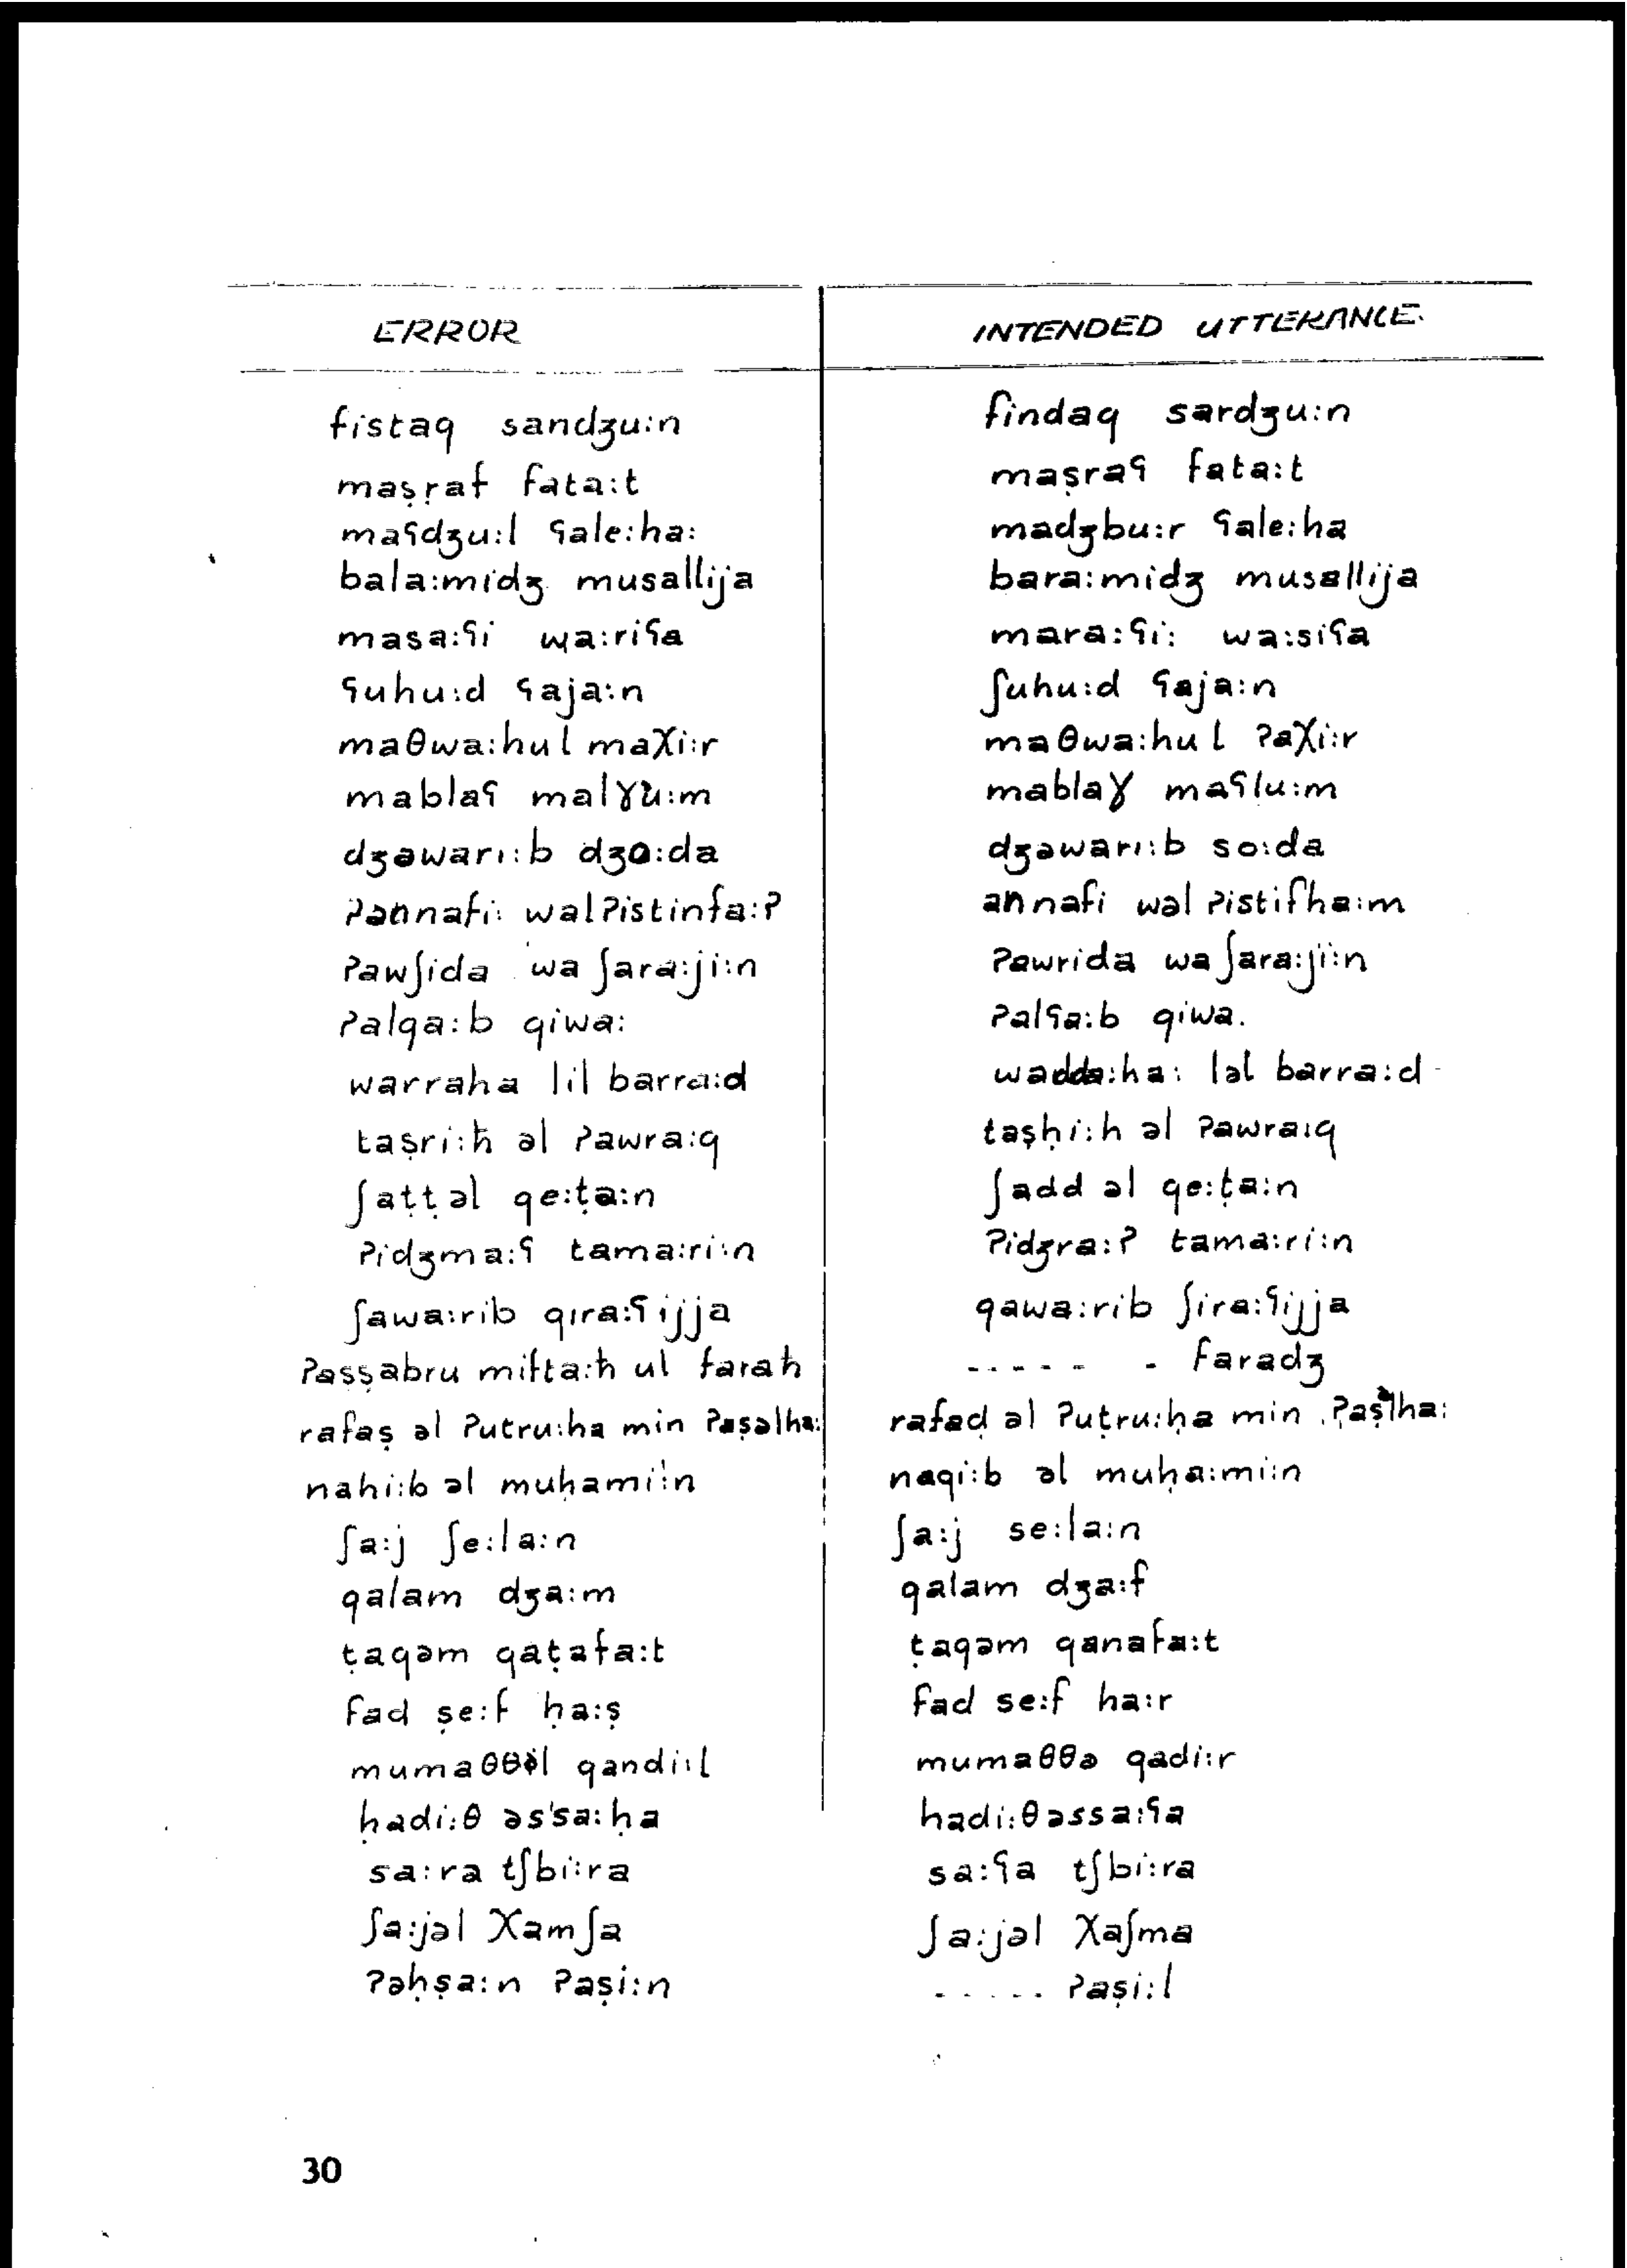 ERROR INTENDED UTTERANCE.
fistaq sandʒu:n findaq sardʒu:n
maṣṛaf fata:t maṣraʕ fata:t
maʕdʒu:l ʕale:ha: madʒbu:r ʕale:ha
bala:midʒ musallija bara:midʒ musallija
masa:ʕi wa:riʕa mara:ʕi: wa:siʕa
ʕuhu:d ʕaja:n ʃuhu:d ʕaja:n
maθwa:hul maχi:r maθwa:hul ʔaχi:r
mablaʕ malɣu:m mablaɣ maʕlu:m
dʒəwari:b dʒo:da dʒəwari:b so:da
ʔənnafi: walʔistinfa:ʔ annafi wəl ʔistifha:m
ʔawʃida wa ʃara:ji:n ʔawrida wa ʃara:ji:n
ʔalqa:b qiwa: ʔalʕa:b qiwa.
warraha lil barra:d wadda:ha: ləl barra:d
taṣri:ħ əl ʔawra:q taṣḥi:h əl ʔawra:q
ʃaṭṭəl qe:ṭa:n ʃadd əl qe:ṭa:n
ʔidʒma:ʕ tama:ri:n ʔidʒra:ʔ tama:ri:n
ʃawa:rib qira:ʕijja qawa:rib ʃira:ʕijja
ʔaṣṣabru mifta:ħ ul faraħ - - - - - - faradʒ
rafaṣ əl ʔutru:ha min ʔaṣəlha: rafaḍ əl ʔuṭru:ḥa min ʔaṣəlha:
nahi:b əl muḥami:n naqi:b əl muḥa:mi:n
ʃa:j ʃe:la:n ʃa:j se:la:n
qalam dʒa:m qalam dʒa:f
ṭaqəm qaṭafa:t ṭaqəm qanafa:t
fad ṣe:f ḥa:ṣ fad se:f ha:r
mumaθθəl qandi:l mumaθθə qadi:r
ḥadi:θ əs'sa:ḥa hadi:θəssa:ʕa
sa:ra tʃbi:ra sa:ʕa tʃbi:ra
ʃa:jəl χamʃa ʃa:jəl χaʃma
ʔəḥṣa:n ʔaṣi:n - - - - - ʔaṣi:l
30